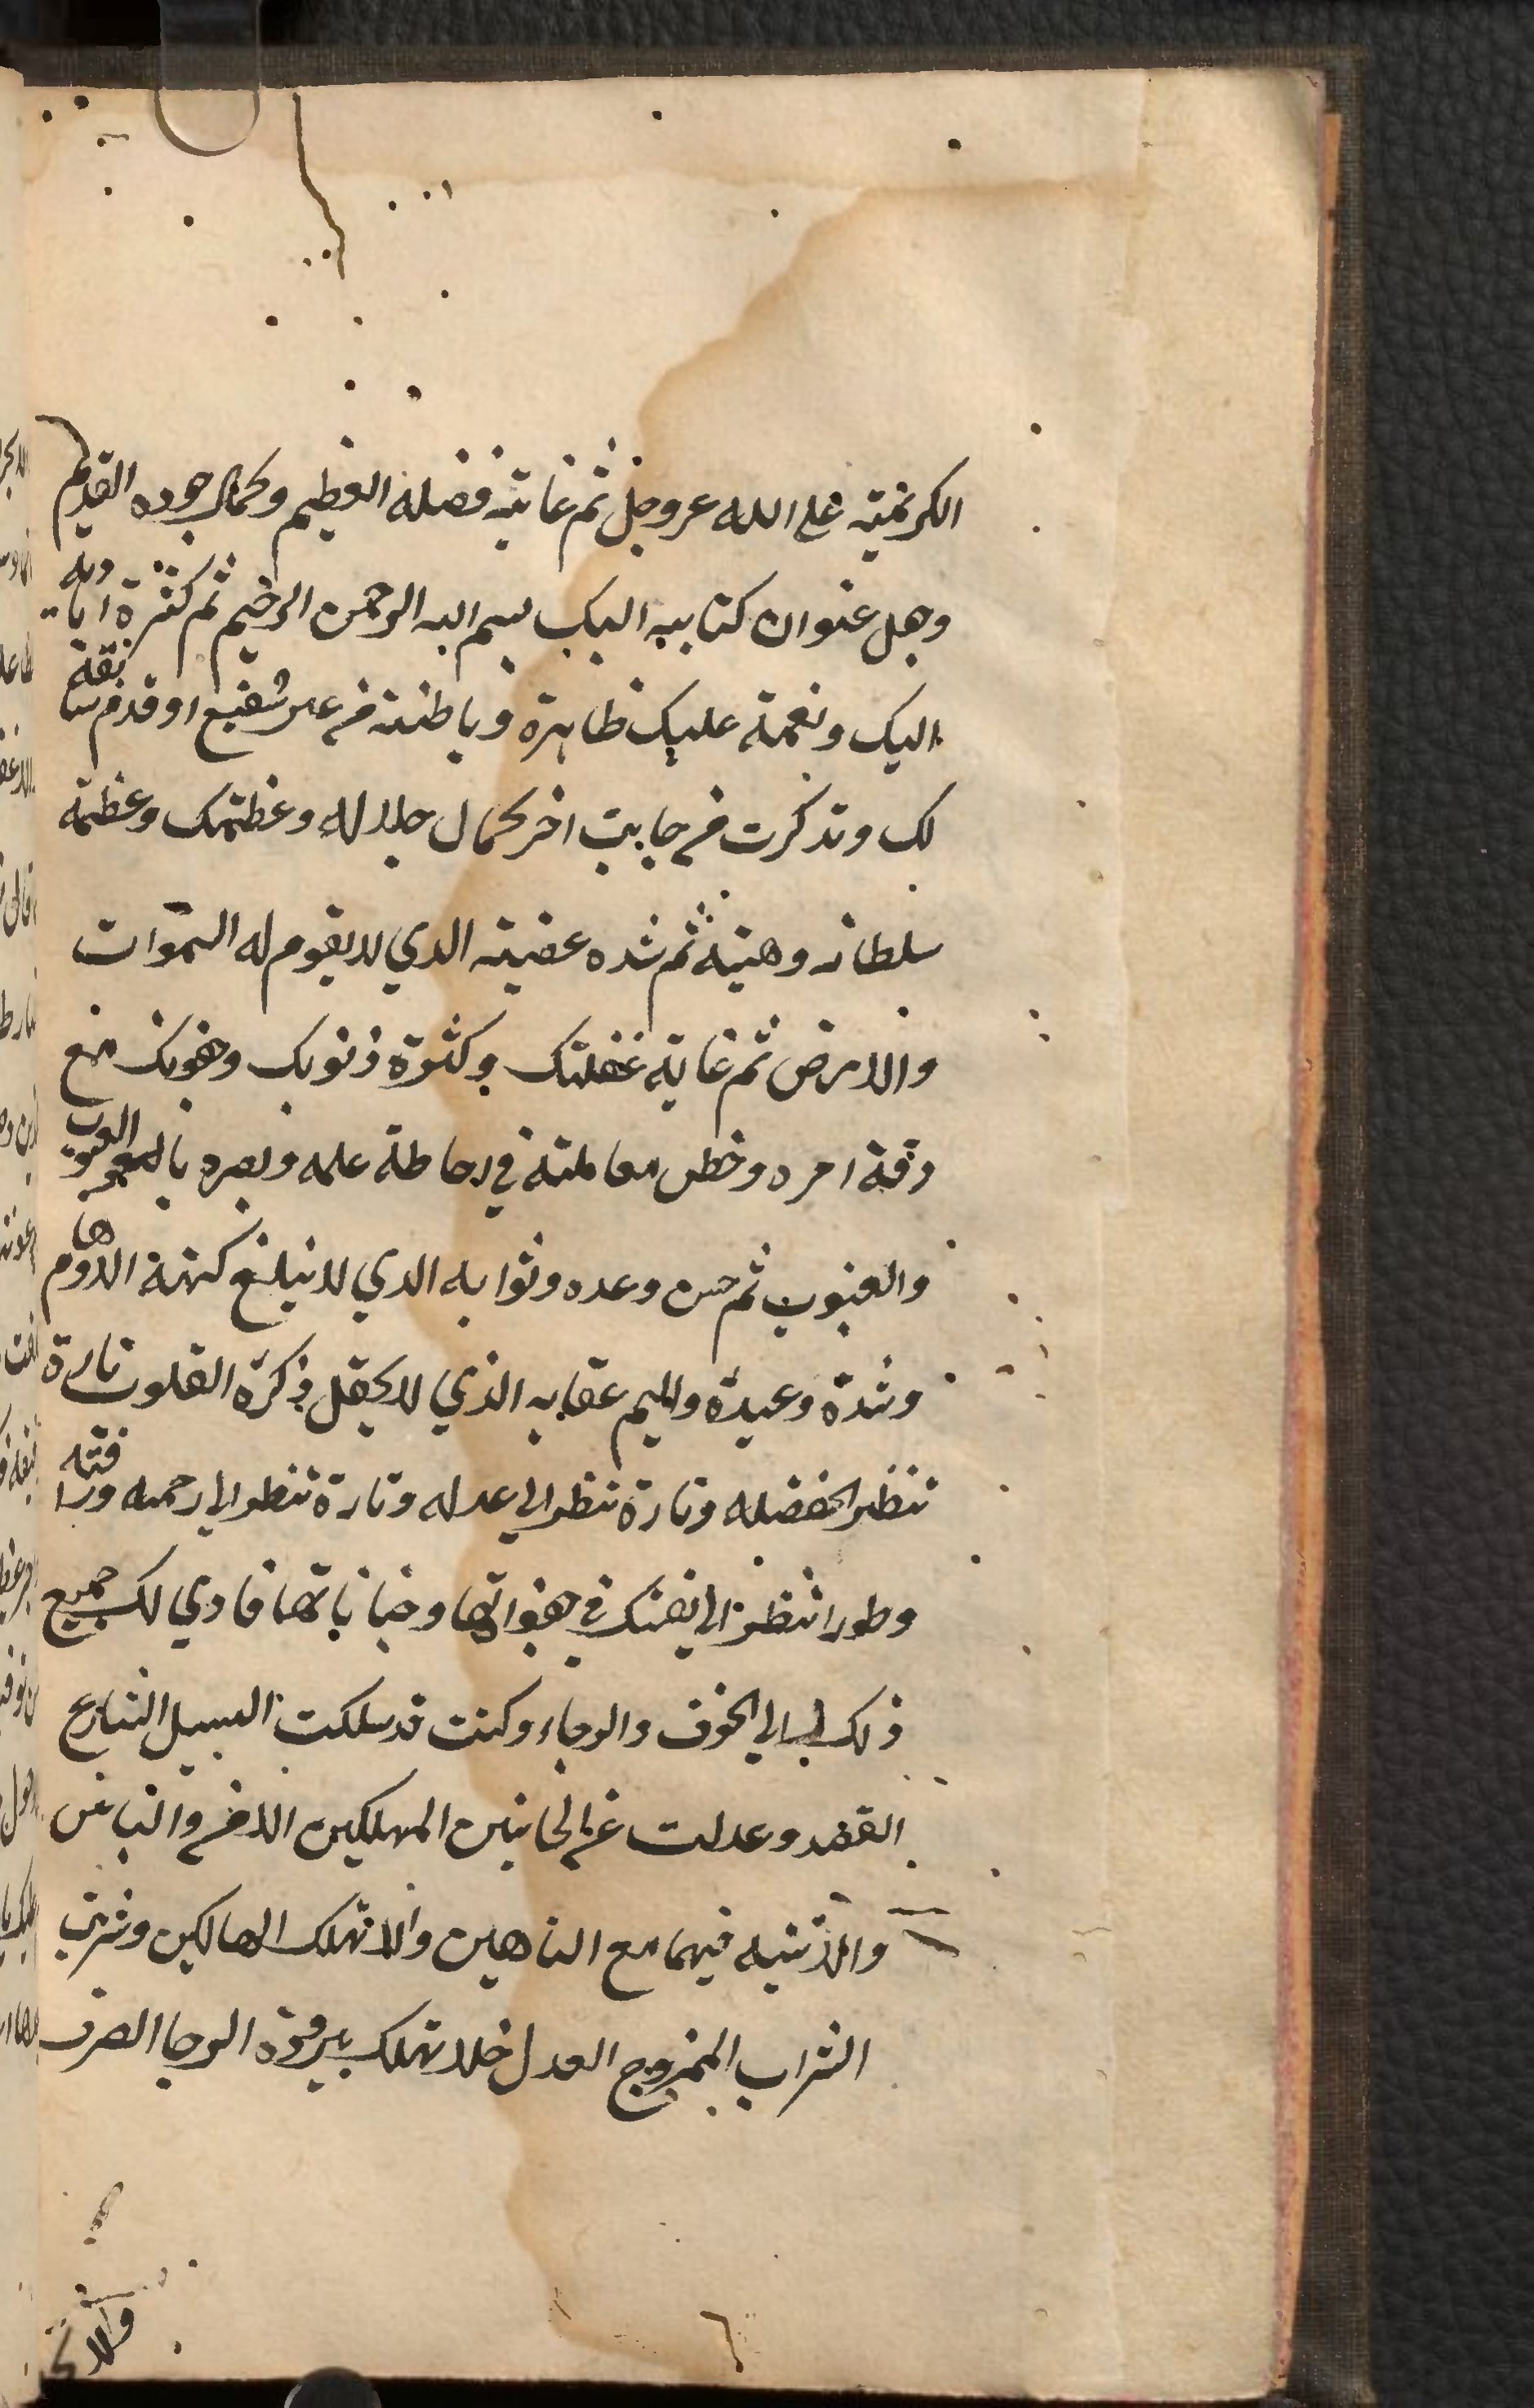 الكرنميته علي الله عز وجل ثم غاية فضله العظيم وكمال جوده القديم
وجعل عنوان كتابيه اليك بسم الله الرحمن الرحيم ثم كثرة اياديه
اليك ونعمة عليك ظاهرة وباطنة من غير شفيع او قدم سابقة
لك وتذكرت في جانب اخر كمال جلاله وعظمتك وعظمة
سلطانه وهيبته ثم شده غضبه الدي لا يقوم له السموات
والارض ثم غاية غفلتك وكثرة ذنوبك وجفوتك مع
دقة امره وخطر معاملته في احاطة علمه وبصره بالعيوب
والغيوب ثم حسن وعده وثوابه الدي لا يبلغ كنهه الاوهام
وشدة وعيده واليم عقابه الذي لا يحتمل ذكره القلوب تارة
تنظر الى فضله وتارة تنظر الي عدله وتارة تنظر الي رحمته ورافته
وطورا تنظر الي نفسك في هفواتها وجناياتها فادي لك جميع
ذلك الي الخوف والرجاء وكنت قد سلكت السبيل الشارع
القصد وعدلت عن الجانبين المهلكين الامن والياس
والا تتيه فيهما مع التاهين والا تهلك الهالكين وشربت
الشراب الممزوج العدل فلا تهلك ببرودة الرجا الصرف
ولا
٦